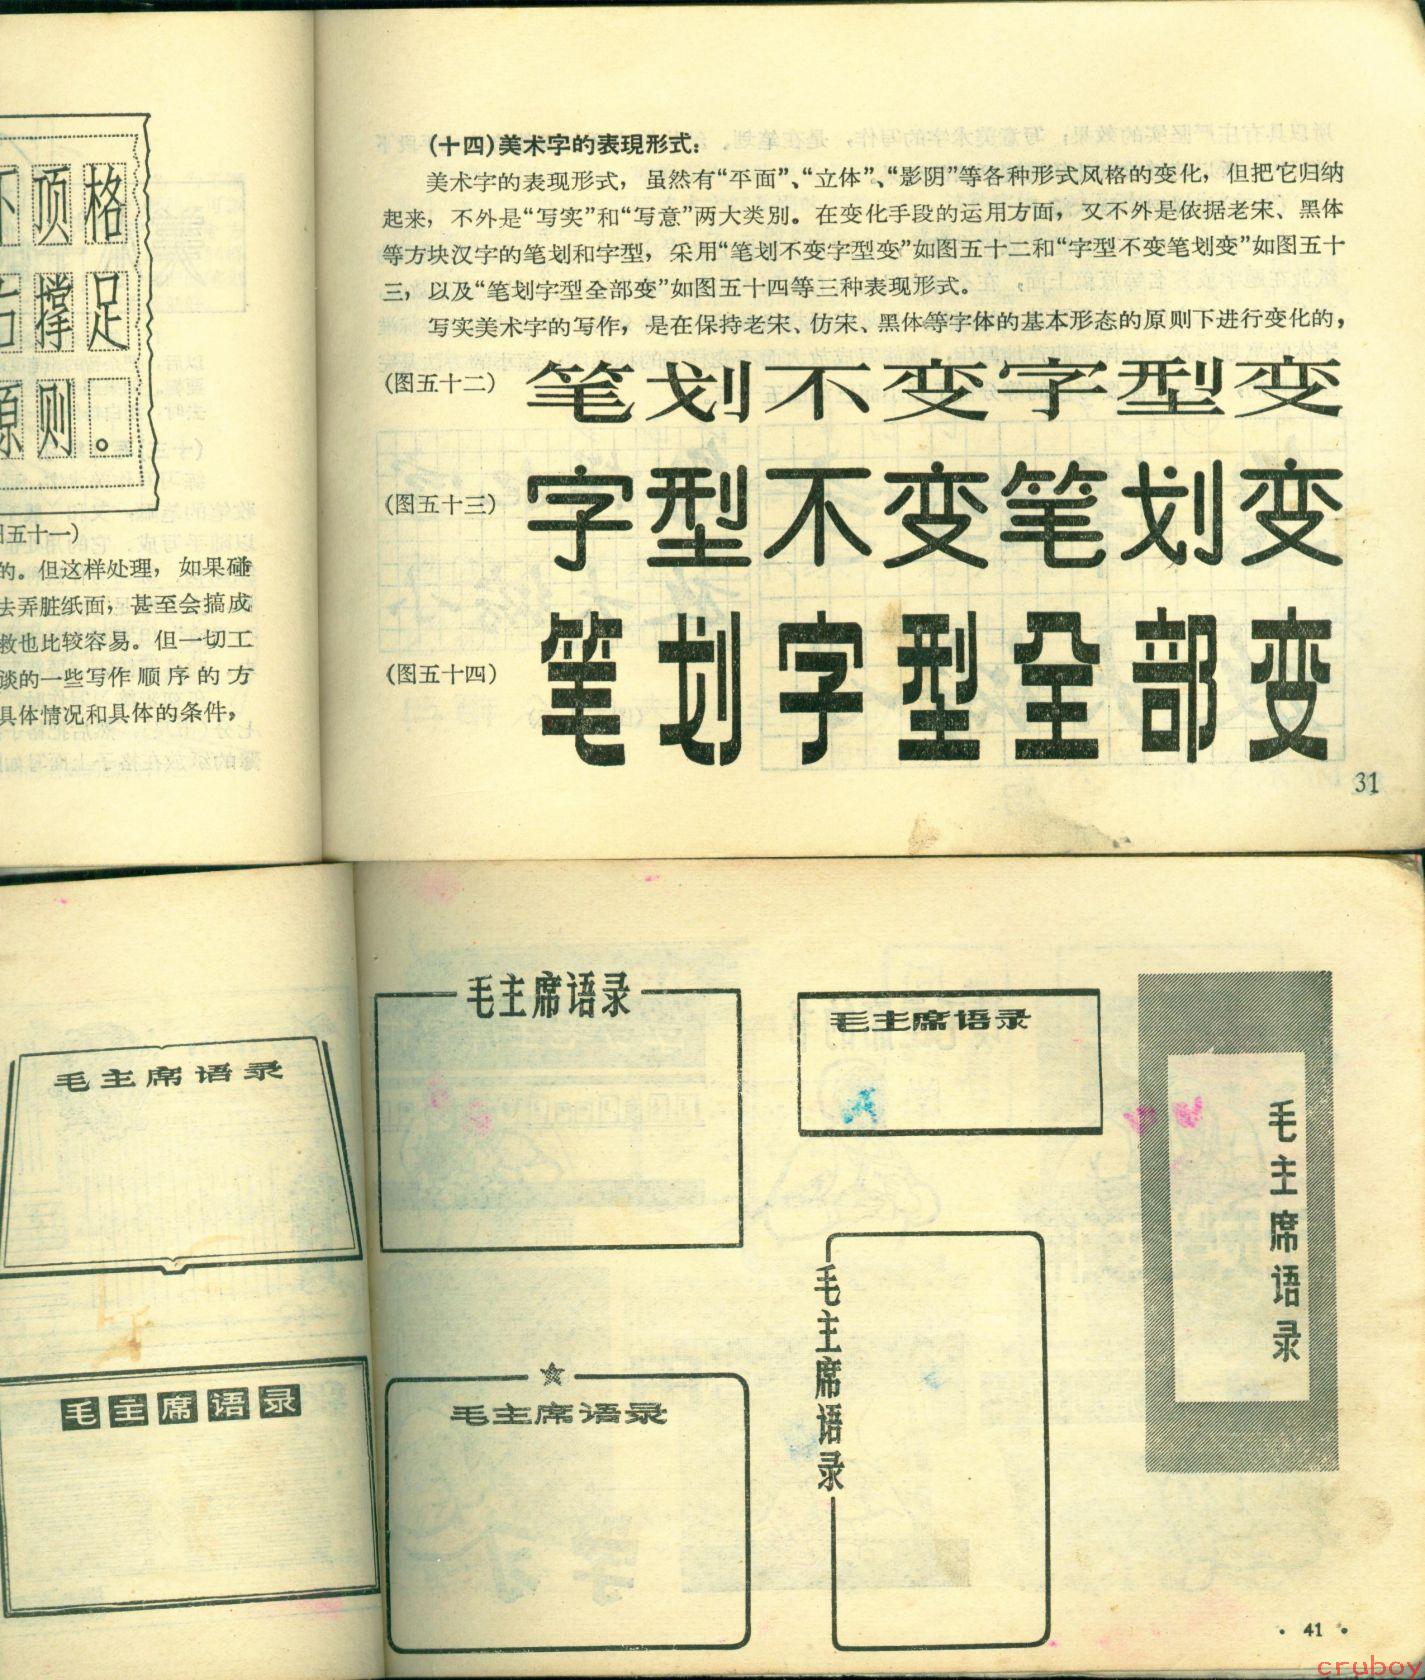 顶格
撑足
则。
五十一)
的。但这样处理，如果碰
去弄脏纸面，甚至会搞成
救也比较容易。但一切工
谈的一些写作顺序的方
具体情况和具体的条件，
(十四)美术字的表现形式：
美术字的表现形式，虽然有“平面”、“立体”、“影阴”等各种形式风格的变化，但把它归纳
起来，不外是“写实”和“写意”两大类别。在变化手段的运用方面，又不外是依据老宋、黑体
等方块汉字的笔划和字型，采用“笔划不变字型变”如图五十二和“字型不变笔划变”如图五十
三，以及“笔划字型全部变”如图五十四等三种表现形式。
写实美术字的写作，是在保持老宋、仿宋、黑体等字体的基本形态的原则下进行变化的，
(图五十二) 笔划不变字型变
(图五十三) 字型不变笔划变
(图五十四) 笔划字型全部变
31
毛主席语录
毛主席语录
毛主席语录
毛主席语录
毛主席语录
毛主席语录
毛主席语录
· 41 ·
cruboy